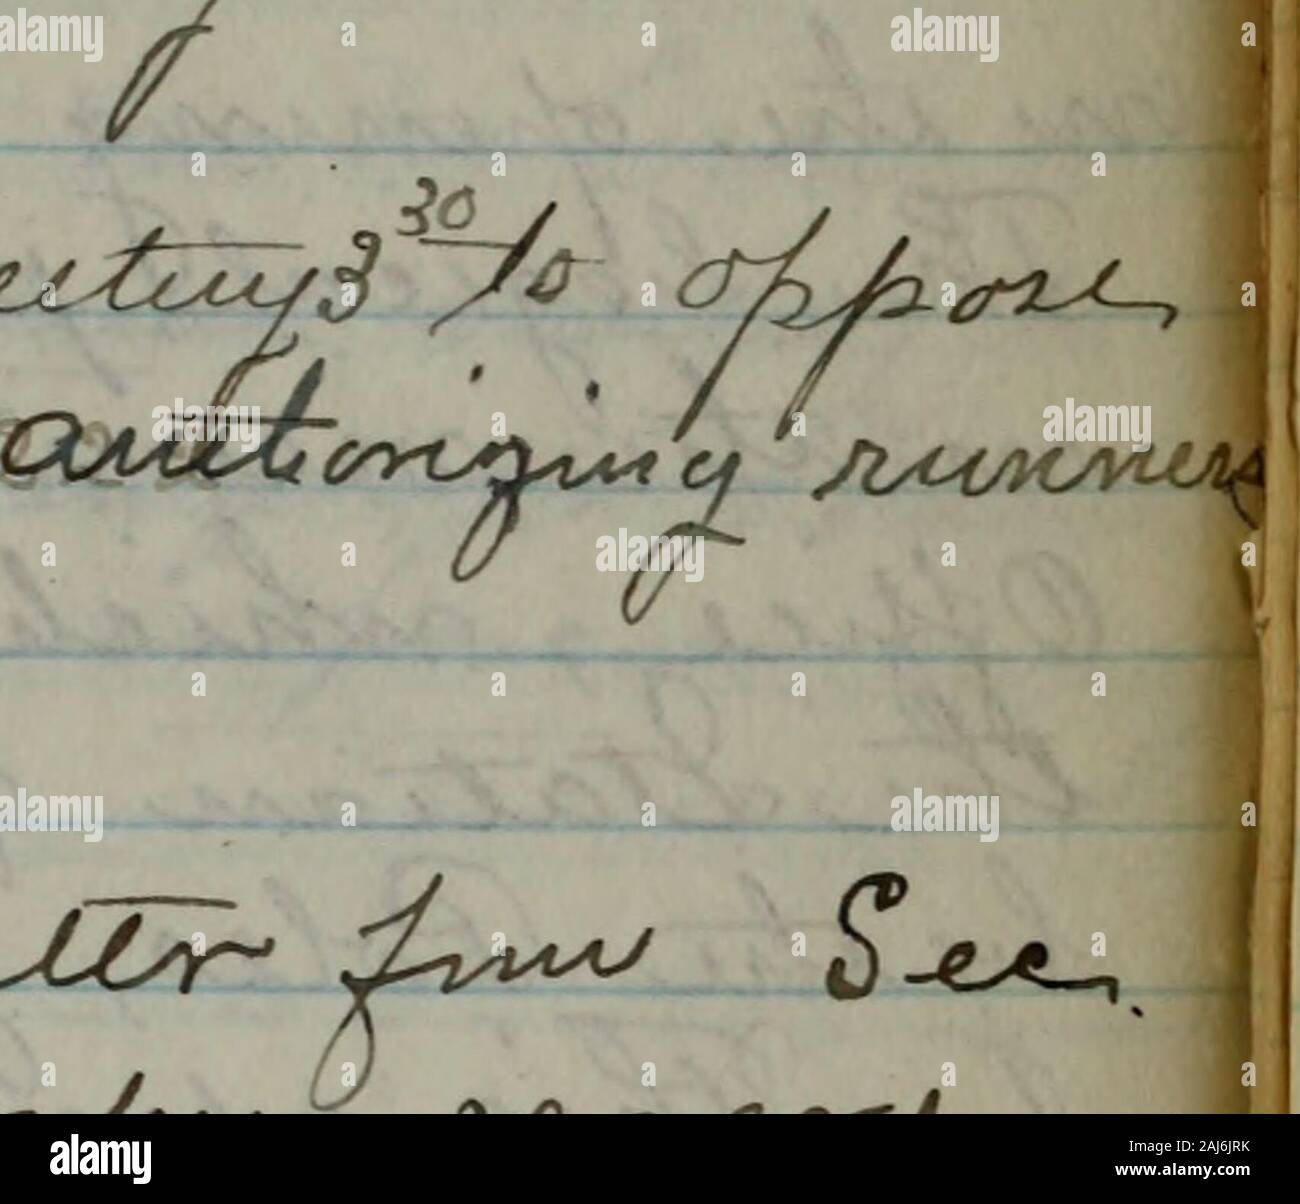 eeting 3 30 to oppose
authorizing runners
etter from Sec.
alamy
Image ID: 2AJ6JRK
www.alamy.com